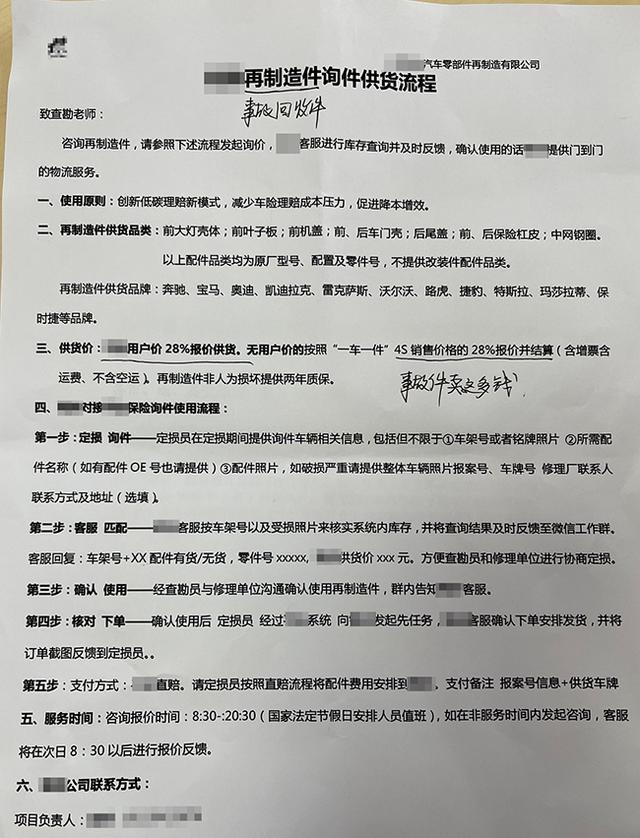 汽车零部件再制造有限公司
再制造件询件供货流程
事故回收件
致查勘老师：
咨询再制造件，请参照下述流程发起询价，客服进行库存查询并及时反馈，确认使用的话提供门到门
的物流服务。
一、使用原则：创新低碳理赔新模式，减少车险理赔成本压力，促进降本增效。
二、再制造件供货品类：前大灯壳体；前叶子板；前机盖；前、后车门壳；后尾盖；前、后保险杠皮；中网钢圈。
以上配件品类均为原厂型号、配置及零件号，不提供改装件配件品类。
再制造件供货品牌：奔驰、宝马、奥迪、凯迪拉克、雷克萨斯、沃尔沃、路虎、捷豹、特斯拉、玛莎拉蒂、保
时捷等品牌。
三、供货价：用户价28%报价供货。无用户价的按照“一车一件”4S 销售价格的28%报价并结算（含增票含
运费、不含空运）。再制造件非人为损坏提供两年质保。
事故件卖这多钱？
四、对接保险询件使用流程：
第一步：定损 询件——定损员在定损期间提供询件车辆相关信息，包括但不限于①车架号或者铭牌照片 ②所需配
件名称（如有配件OE号也请提供）③配件照片，如破损严重请提供整体车辆照片报案号、车牌号 修理厂联系人
联系方式及地址（选填）。
第二步：客服 匹配——客服按车架号以及受损照片来核实系统内库存，并将查询结果及时反馈至微信工作群。
客服回复：车架号+XX 配件有货/无货，零件号 xxxxx，供货价 xxx 元。方便查勘员和修理单位进行协商定损。
第三步：确认 使用——经查勘员与修理单位沟通确认使用再制造件，群内告知客服。
第四步：核对 下单——确认使用后 定损员 经过系统 向发起先任务，客服确认下单安排发货，并将
订单截图反馈到定损员。。
第五步：支付方式：直赔。请定损员按照直赔流程将配件费用安排到，支付备注 报案号信息+供货车牌
五、服务时间：咨询报价时间：8:30-:20:30（国家法定节假日安排人员值班），如在非服务时间内发起咨询，客服
将在次日8：30以后进行报价反馈。
六、公司联系方式：
项目负责人：